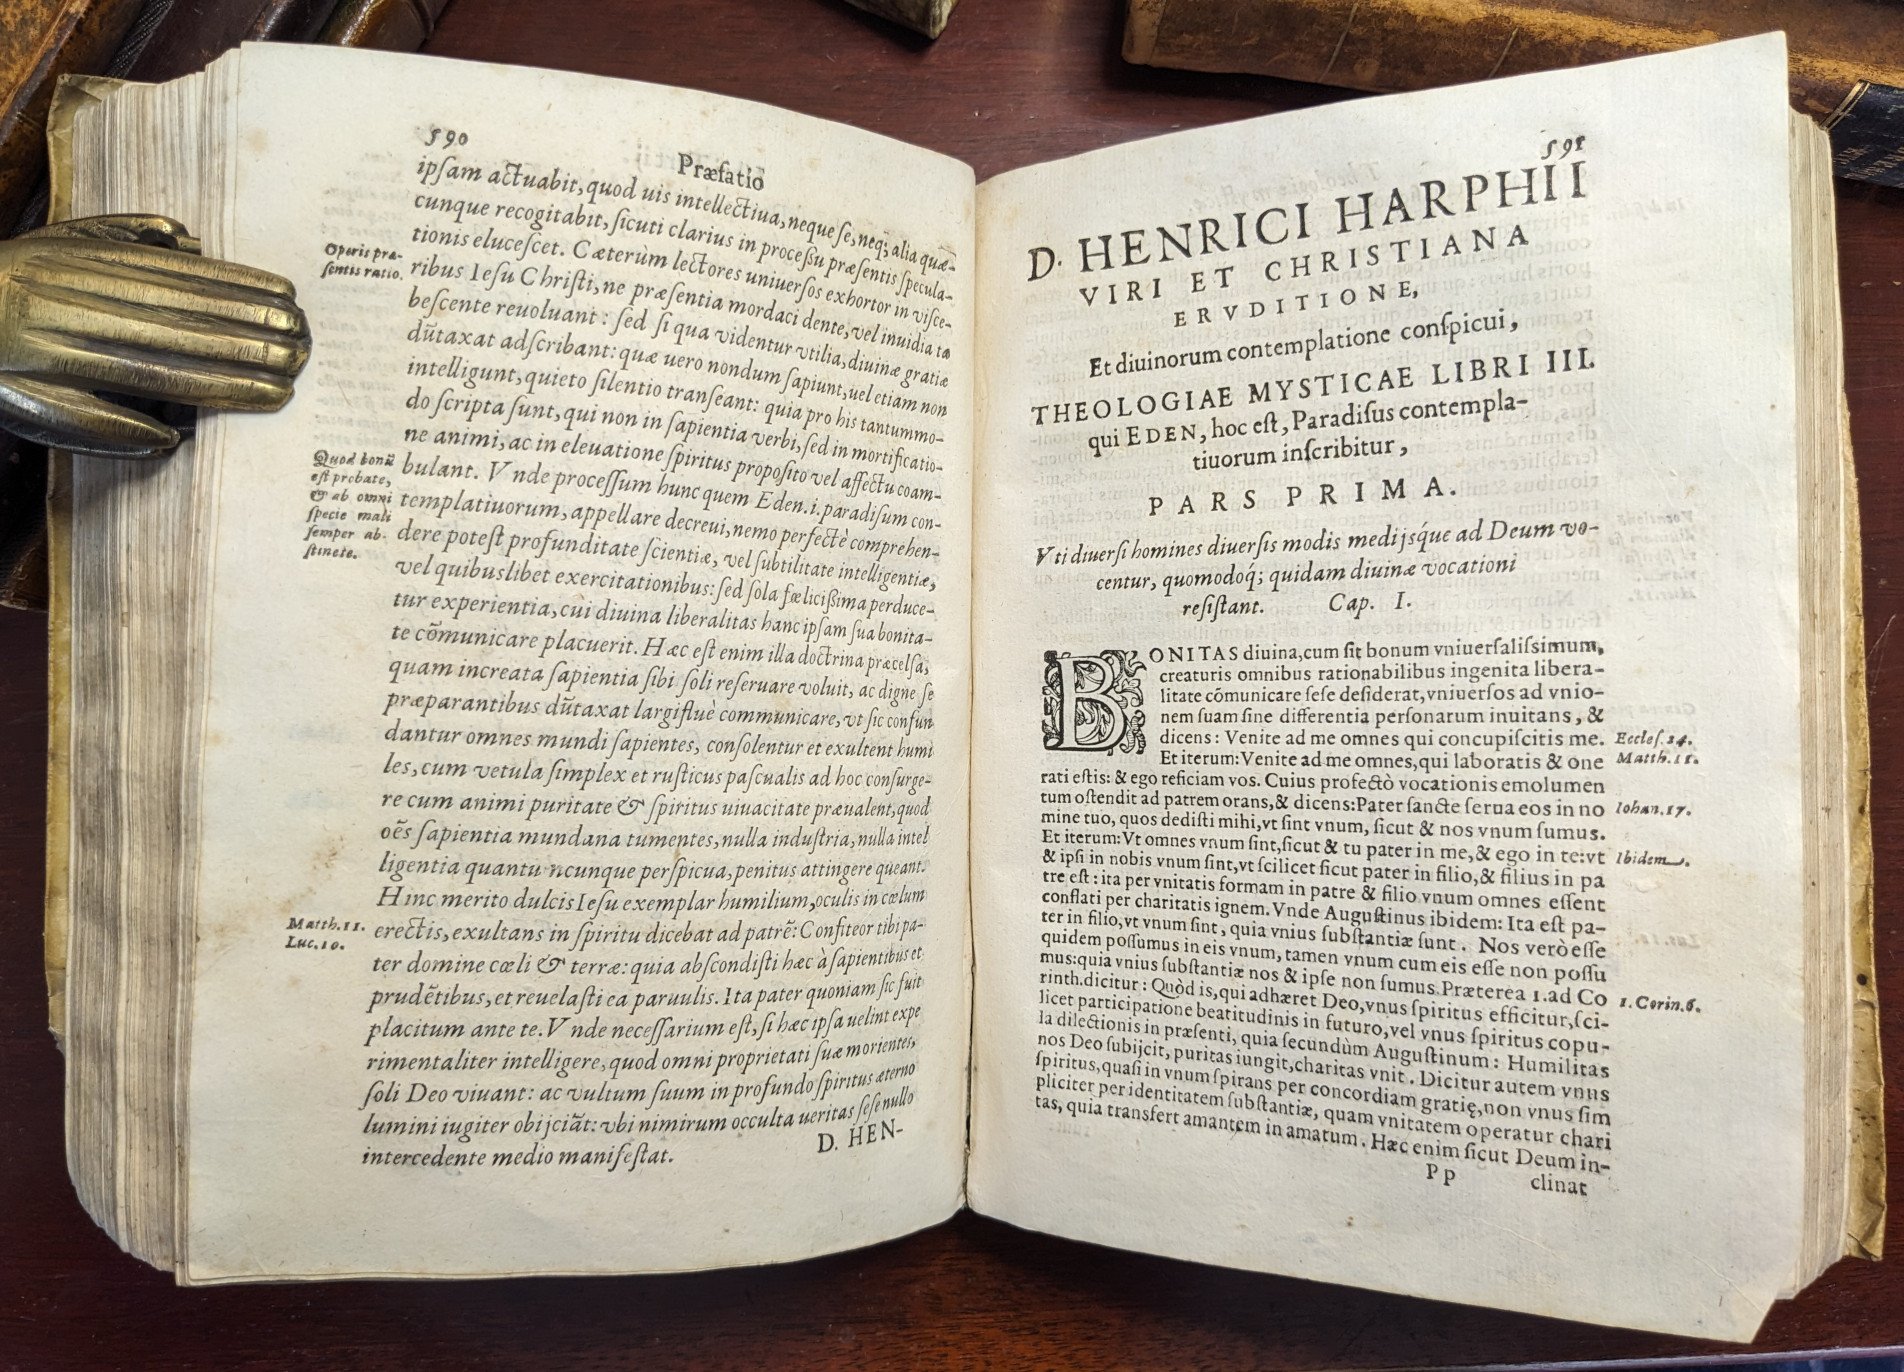 590
Præfatio
ipſam actuabit, quod uis intellectiua, neque ſe, neq; alia quæ-
cunque recogitabit, ſicuti clarius in proceſſu præſentis ſpecula-
tionis eluceſcet. Cæterùm lectores uniuerſos exhortor in viſce-
Operis præ-
ſentis ratio.
ribus Ieſu Chriſti, ne præſentia mordaci dente, vel inuidia ta
beſcente reuoluant: ſed ſi qua videntur vtilia, diuinæ gratiæ
dūtaxat adſcribant: quæ uero nondum ſapiunt, uel etiam non
intelligunt, quieto ſilentio tranſeant: quia pro his tantummo-
do ſcripta ſunt, qui non in ſapientia verbi, ſed in mortificatio-
ne animi, ac in eleuatione ſpiritus propoſito vel affectu coam-
Quod bonū
eſt probate,
& ab omni
ſpecie mali
ſemper ab-
ſtinete.
bulant. Vnde proceſſum hunc quem Eden .i. paradiſum con-
templatiuorum, appellare decreui, nemo perfectè comprehen-
dere poteſt profunditate ſcientiæ, vel ſubtilitate intelligentiæ,
vel quibuslibet exercitationibus: ſed ſola fœliciſsima perduce-
tur experientia, cui diuina liberalitas hanc ipſam ſua bonita-
te cōmunicare placuerit. Hæc eſt enim illa doctrina præcelſa,
quam increata ſapientia ſibi ſoli reſeruare voluit, ac digne ſe
præparantibus dūtaxat largifluè communicare, vt ſic confun
dantur omnes mundi ſapientes, conſolentur et exultent humi
les, cum vetula ſimplex et ruſticus paſcualis ad hoc conſurge-
re cum animi puritate & ſpiritus uiuacitate præualent, quod
oēs ſapientia mundana tumentes, nulla induſtria, nulla intel
ligentia quantu ncunque perſpicua, penitus attingere queant.
Hinc merito dulcis Ieſu exemplar humilium, oculis in cœlum
Matth. 11.
Luc. 10.
erectis, exultans in ſpiritu dicebat ad patrē: Confiteor tibi pa-
ter domine cœli & terræ: quia abſcondiſti hæc à ſapientibus et
prudētibus, et reuelaſti ea paruulis. Ita pater quoniam ſic fuit
placitum ante te. Vnde neceſſarium eſt, ſi hæc ipſa uelint expe
rimentaliter intelligere, quod omni proprietati ſuæ morientes,
ſoli Deo viuant: ac vultum ſuum in profundo ſpiritus æterno
lumini iugiter obijciāt: vbi nimirum occulta ueritas ſeſe nullo
intercedente medio manifeſtat.
D. HEN-
591
D. HENRICI HARPHII
VIRI ET CHRISTIANA
ERVDITIONE,
Et diuinorum contemplatione conſpicui,
THEOLOGIAE MYSTICAE LIBRI III.
qui EDEN, hoc eſt, Paradiſus contempla-
tiuorum inſcribitur,
PARS PRIMA.
Vti diuerſi homines diuerſis modis medijsq́ue ad Deum vo-
centur, quomodoq́; quidam diuinæ vocationi
reſiſtant. Cap. I.
BONITAS diuina, cum ſit bonum vniuerſaliſsimum,
creaturis omnibus rationabilibus ingenita libera-
litate cōmunicare ſeſe deſiderat, vniuerſos ad vnio-
nem ſuam ſine differentia perſonarum inuitans, &
dicens: Venite ad me omnes qui concupiſcitis me.
Eccleſ. 24.
Et iterum: Venite ad me omnes, qui laboratis & one
Matth. 11.
rati eſtis: & ego reficiam vos. Cuius profectò vocationis emolumen
tum oſtendit ad patrem orans, & dicens: Pater ſancte ſerua eos in no
Iohan. 17.
mine tuo, quos dediſti mihi, vt ſint vnum, ſicut & nos vnum ſumus.
Et iterum: Vt omnes vnum ſint, ſicut & tu pater in me, & ego in te: vt
Ibidem.
& ipſi in nobis vnum ſint, vt ſcilicet ſicut pater in filio, & filius in pa
tre eſt: ita per vnitatis formam in patre & filio vnum omnes eſſent
conflati per charitatis ignem. Vnde Auguſtinus ibidem: Ita eſt pa-
ter in filio, vt vnum ſint, quia vnius ſubſtantiæ ſunt. Nos verò eſſe
quidem poſſumus in eis vnum, tamen vnum cum eis eſſe non poſſu
mus: quia vnius ſubſtantiæ nos & ipſe non ſumus. Præterea 1. ad Co
rinth. dicitur: Quòd is, qui adhæret Deo, vnus ſpiritus efficitur, ſci-
1. Corin. 6.
licet participatione beatitudinis in futuro, vel vnus ſpiritus copu-
la dilectionis in præſenti, quia ſecundùm Auguſtinum: Humilitas
nos Deo ſubijcit, puritas iungit, charitas vnit. Dicitur autem vnus
ſpiritus, quaſi in vnum ſpirans per concordiam gratię, non vnus ſim
pliciter per identitatem ſubſtantiæ, quam vnitatem operatur chari
tas, quia transfert amantem in amatum. Hæc enim ſicut Deum in-
Pp
clinat